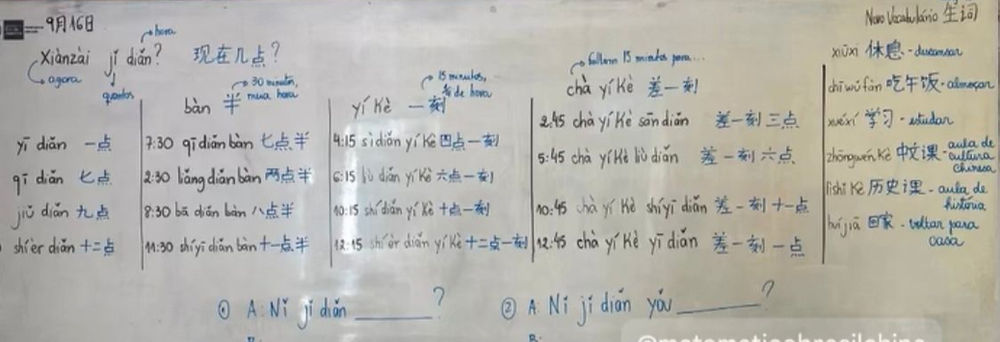 9月16日
Xiànzài jǐ diǎn? 现在几点?
hora
agora
quantos
yī diǎn 一点
qī diǎn 七点
jiǔ diǎn 九点
shí'èr diǎn 十二点
bàn 半
30 minutos, meia hora
7:30 qī diǎn bàn 七点半
2:30 liǎng diǎn bàn 两点半
8:30 bā diǎn bàn 八点半
11:30 shíyī diǎn bàn 十一点半
yí kè 一刻
15 minutos, ¼ de hora
4:15 sì diǎn yí kè 四点一刻
6:15 liù diǎn yí kè 六点一刻
10:15 shí diǎn yí kè 十点一刻
12:15 shí'èr diǎn yí kè 十二点一刻
faltam 15 minutos para...
chà yí kè 差一刻
2:45 chà yí kè sān diǎn 差一刻三点
5:45 chà yí kè liù diǎn 差一刻六点
10:45 chà yí kè shíyī diǎn 差一刻十一点
12:45 chà yí kè yī diǎn 差一刻一点
Novo Vocabulário 生词
xiūxi 休息 - descansar
chī wǔfàn 吃午饭 - almoçar
xuéxí 学习 - estudar
zhōngwén kè 中文课 - aula de cultura chinesa
lìshǐ kè 历史课 - aula de história
huíjiā 回家 - voltar para casa
① A: Nǐ jǐ diǎn ______?
② A: Nǐ jǐ diǎn yǒu ______?
B:
B:
@matematicabrasilchina